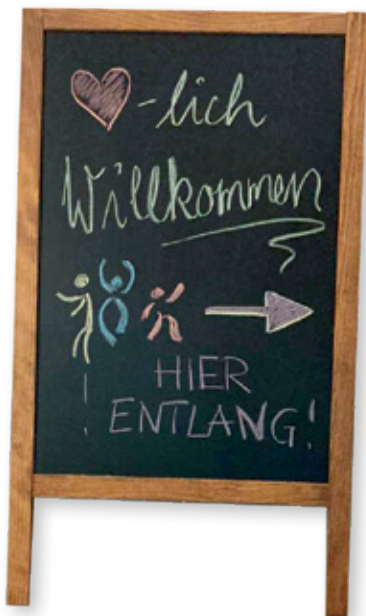 -lich
Willkommen
HIER
! ENTLANG!